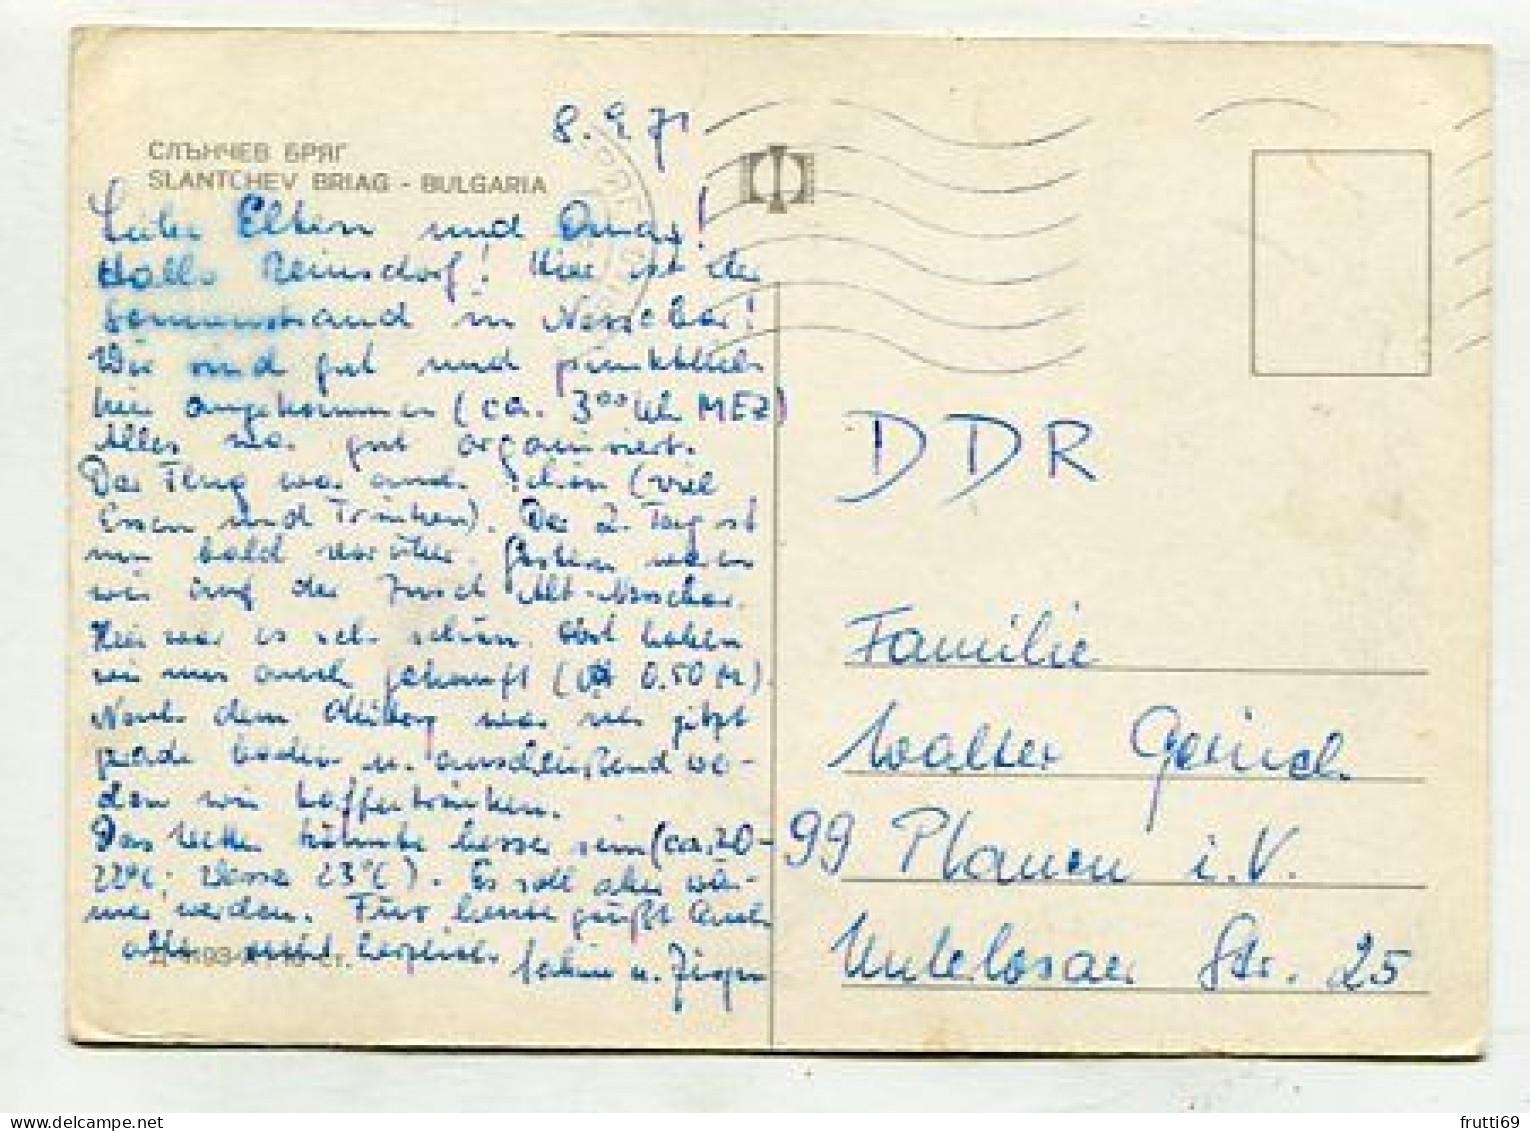 8.9.71
СЛЪНЧЕВ БРЯГ
SLANTCHEV BRIAG - BULGARIA
Liebe Eltern und Omas!
Hallo Reinsdorf! Hier ist der
Sonnenstrand in Nessebar!
Wir sind gut und pünktlich
hier angekommen (ca. 3⁰⁰ Uhr MEZ)
Alles war gut organisiert.
Der Flug war auch schön (viel
Essen und Trinken). Der 2. Tag ist
nun bald vorüber. Gestern waren
wir auf der Insel Alt-Nessebar.
Hier war es sehr schön. Obst haben
wir uns auch gekauft (0.50 M).
Nach dem waren wir jetzt
gerade baden u. anschließend wer-
den wir Kaffeetrinken.
Das Wetter könnte besser sein (ca. 20-
22°C; Wasser 23°C). Es soll aber wär-
mer werden. Für heute grüßt Euch
alle recht herzlich u. Jürgen
DDR
Familie
Walter
99 Plauen i.V.
Unterlosaer Str. 25
frutti69